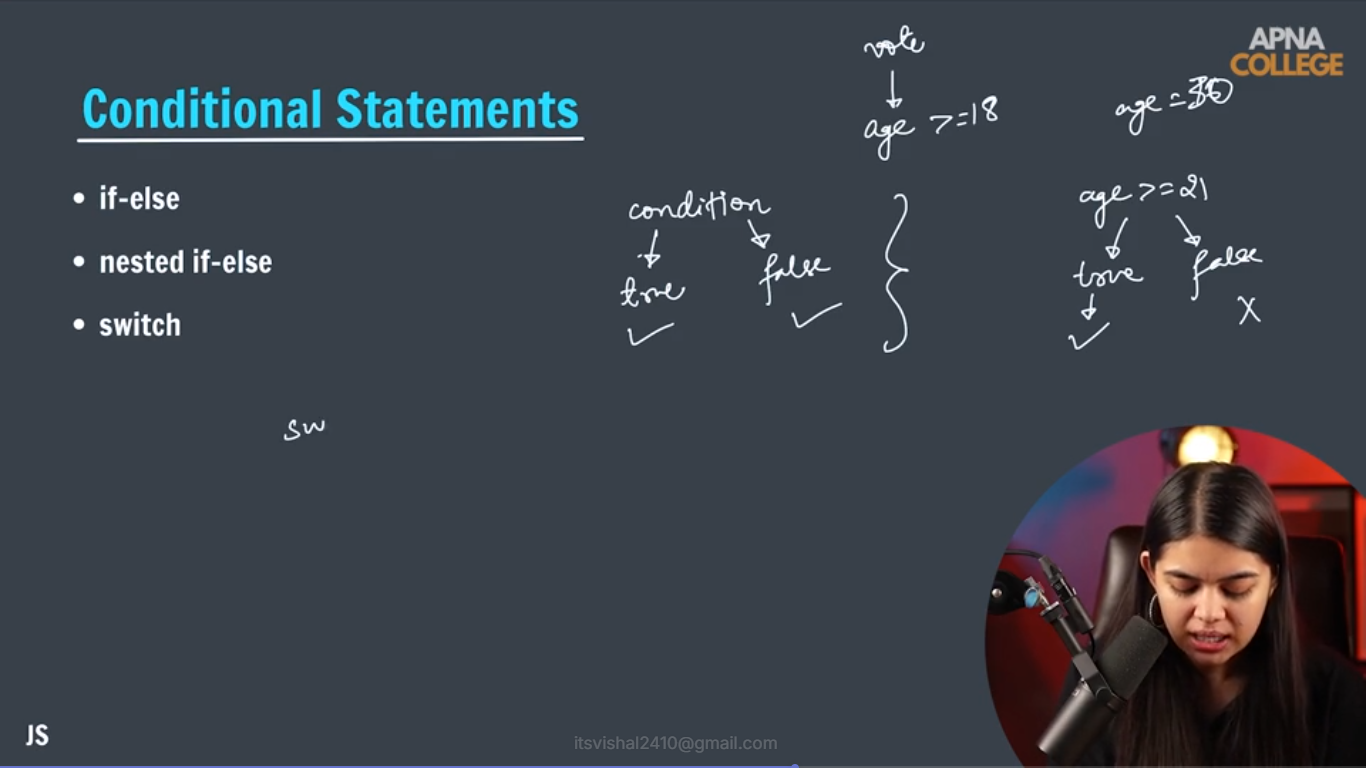 APNA
COLLEGE
Conditional Statements
• if-else
• nested if-else
• switch
vote
age >=18
condition
true
false
age =
age >=21
true
false
X
sw
JS
itsvishal2410@gmail.com